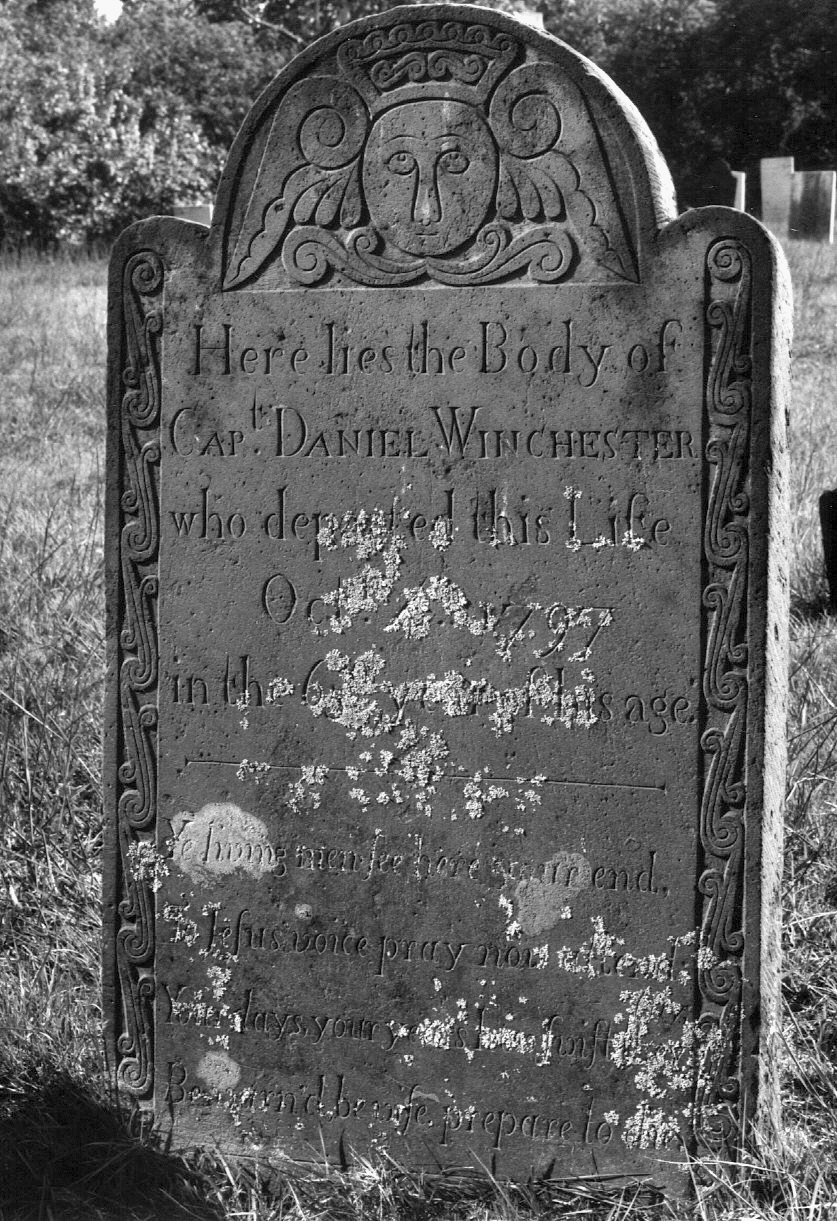 Here lies the Body of
Capt. DANIEL WINCHESTER
who departed this Life
Oct. 1797
in the year of his age
Ye living men ſee here your end,
To Jeſus voice pray now attend
Your days your years how ſwift
Be warn'd be wiſe prepare to die